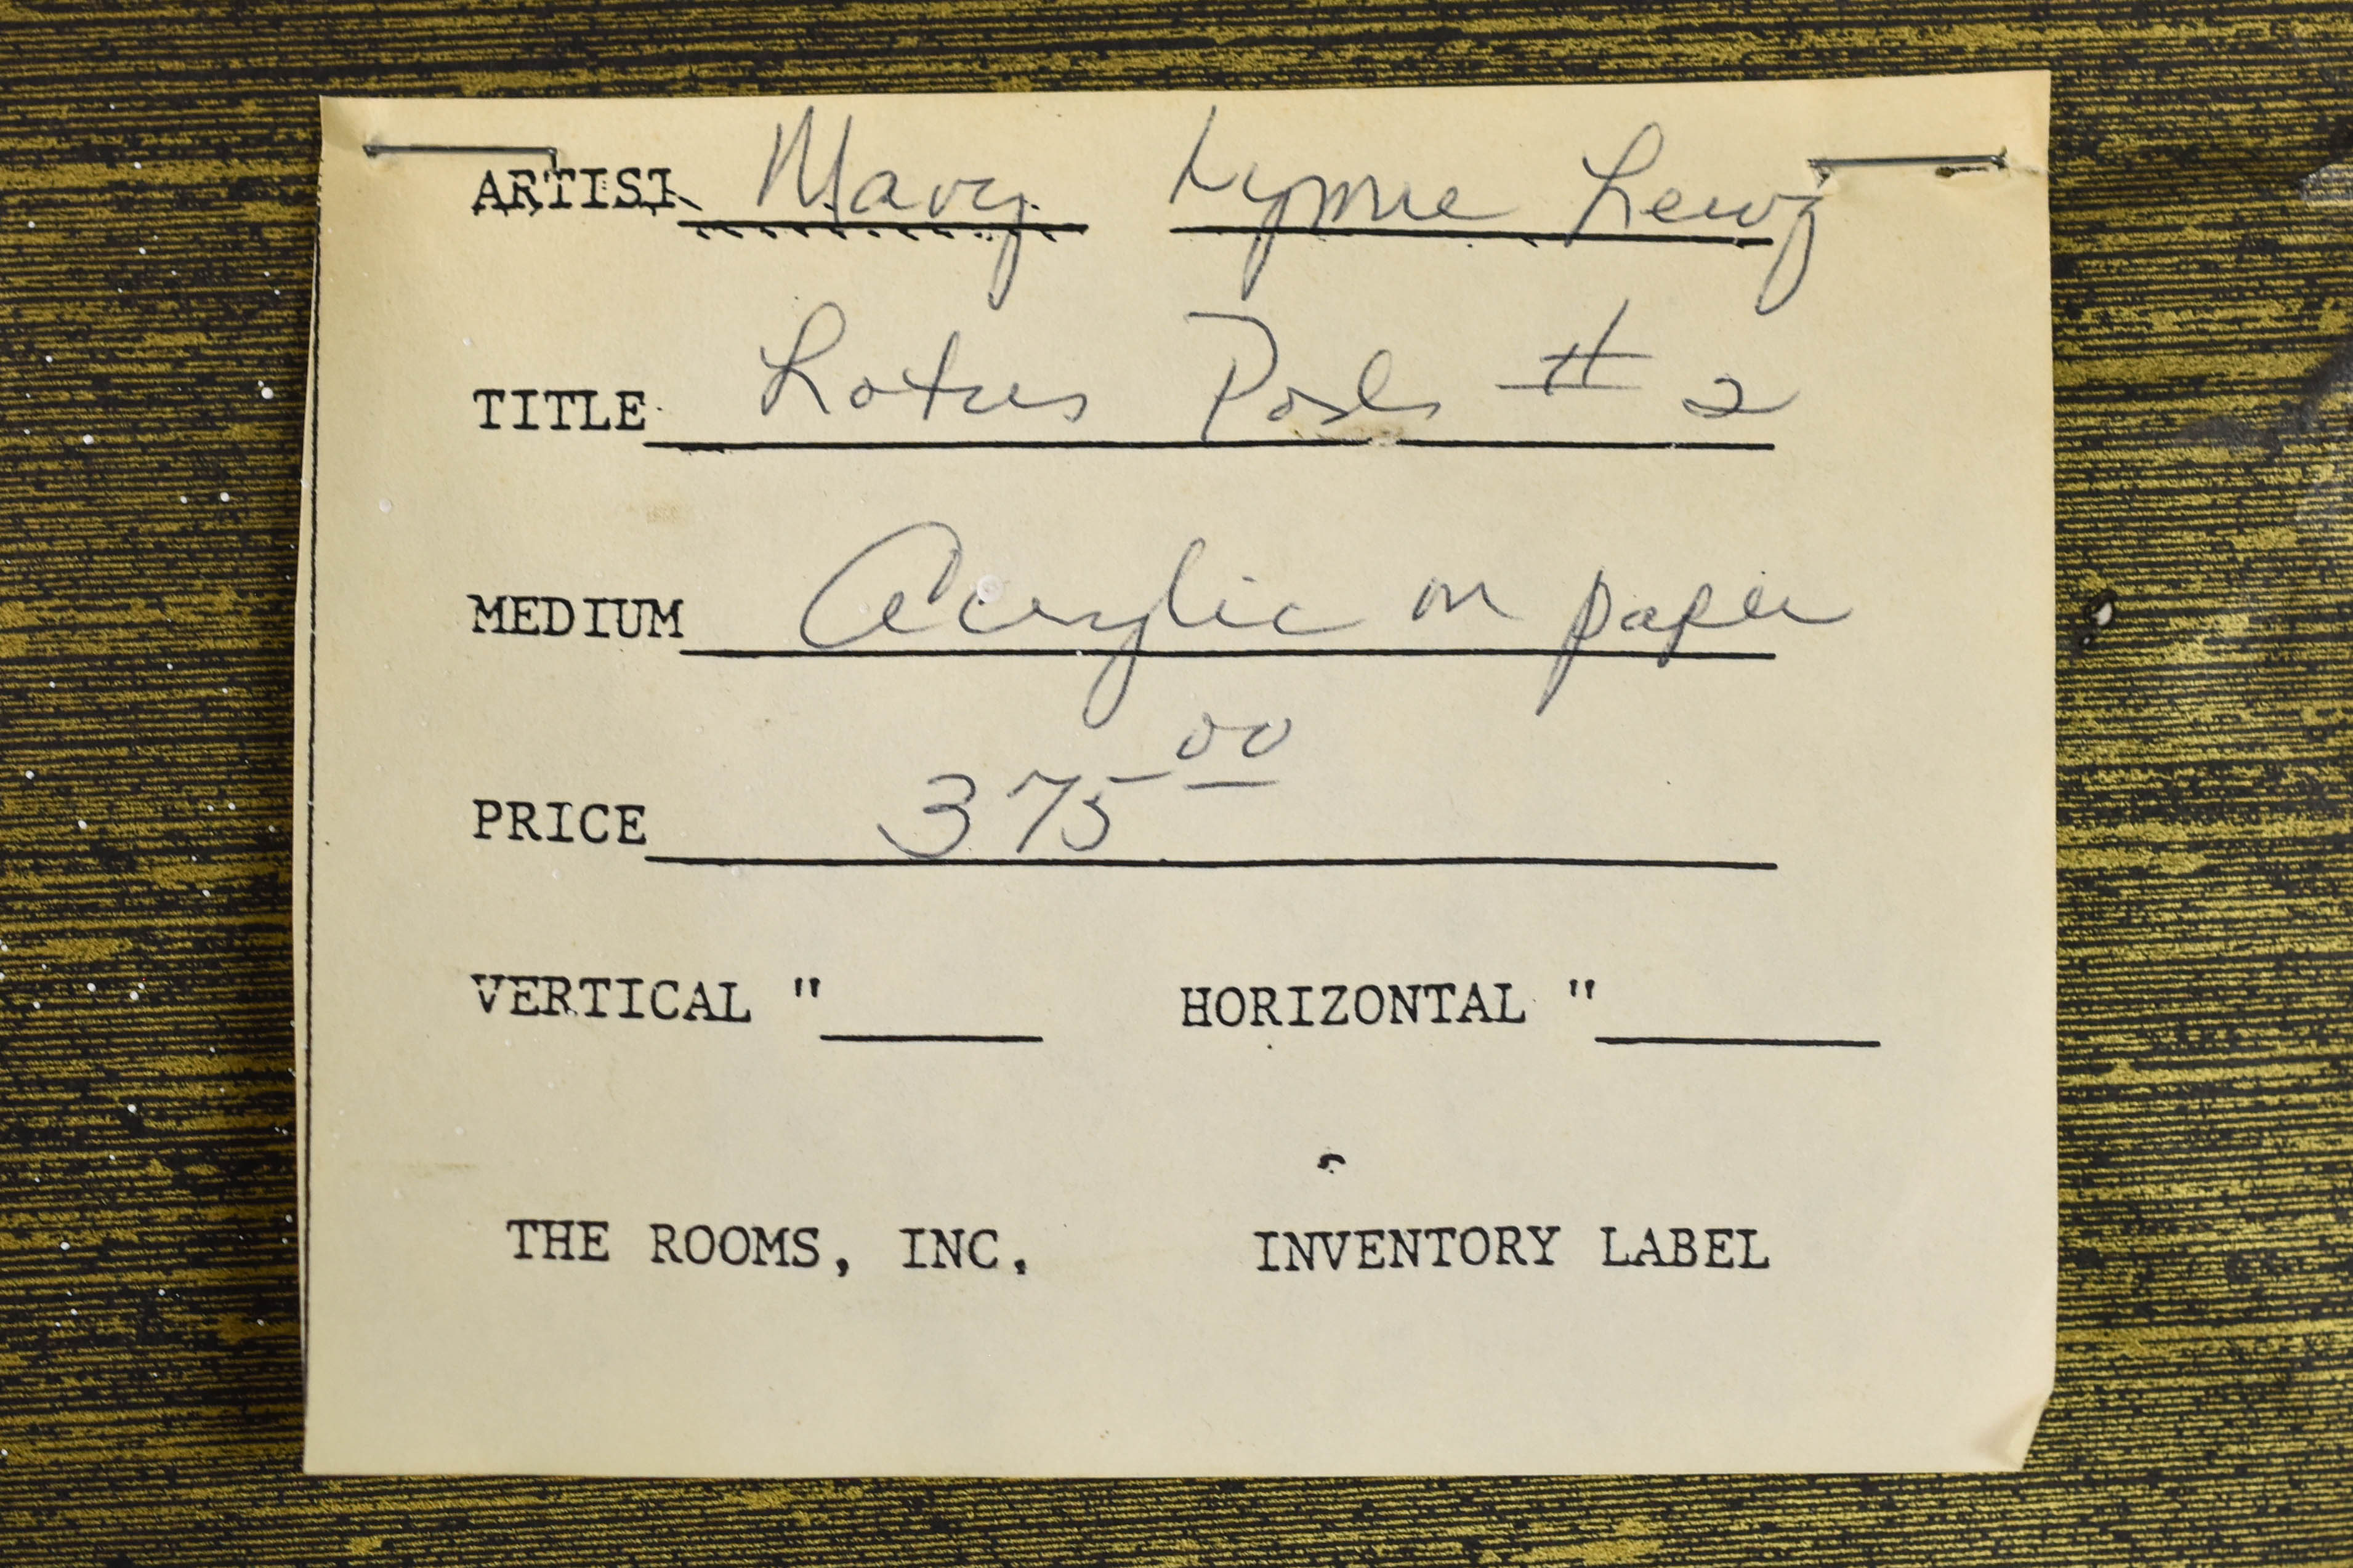 ARTIST Mary Lynne Lewy
TITLE Lotus Pods # 2
MEDIUM Acrylic on paper
PRICE 375 00
VERTICAL " HORIZONTAL "
THE ROOMS, INC. INVENTORY LABEL